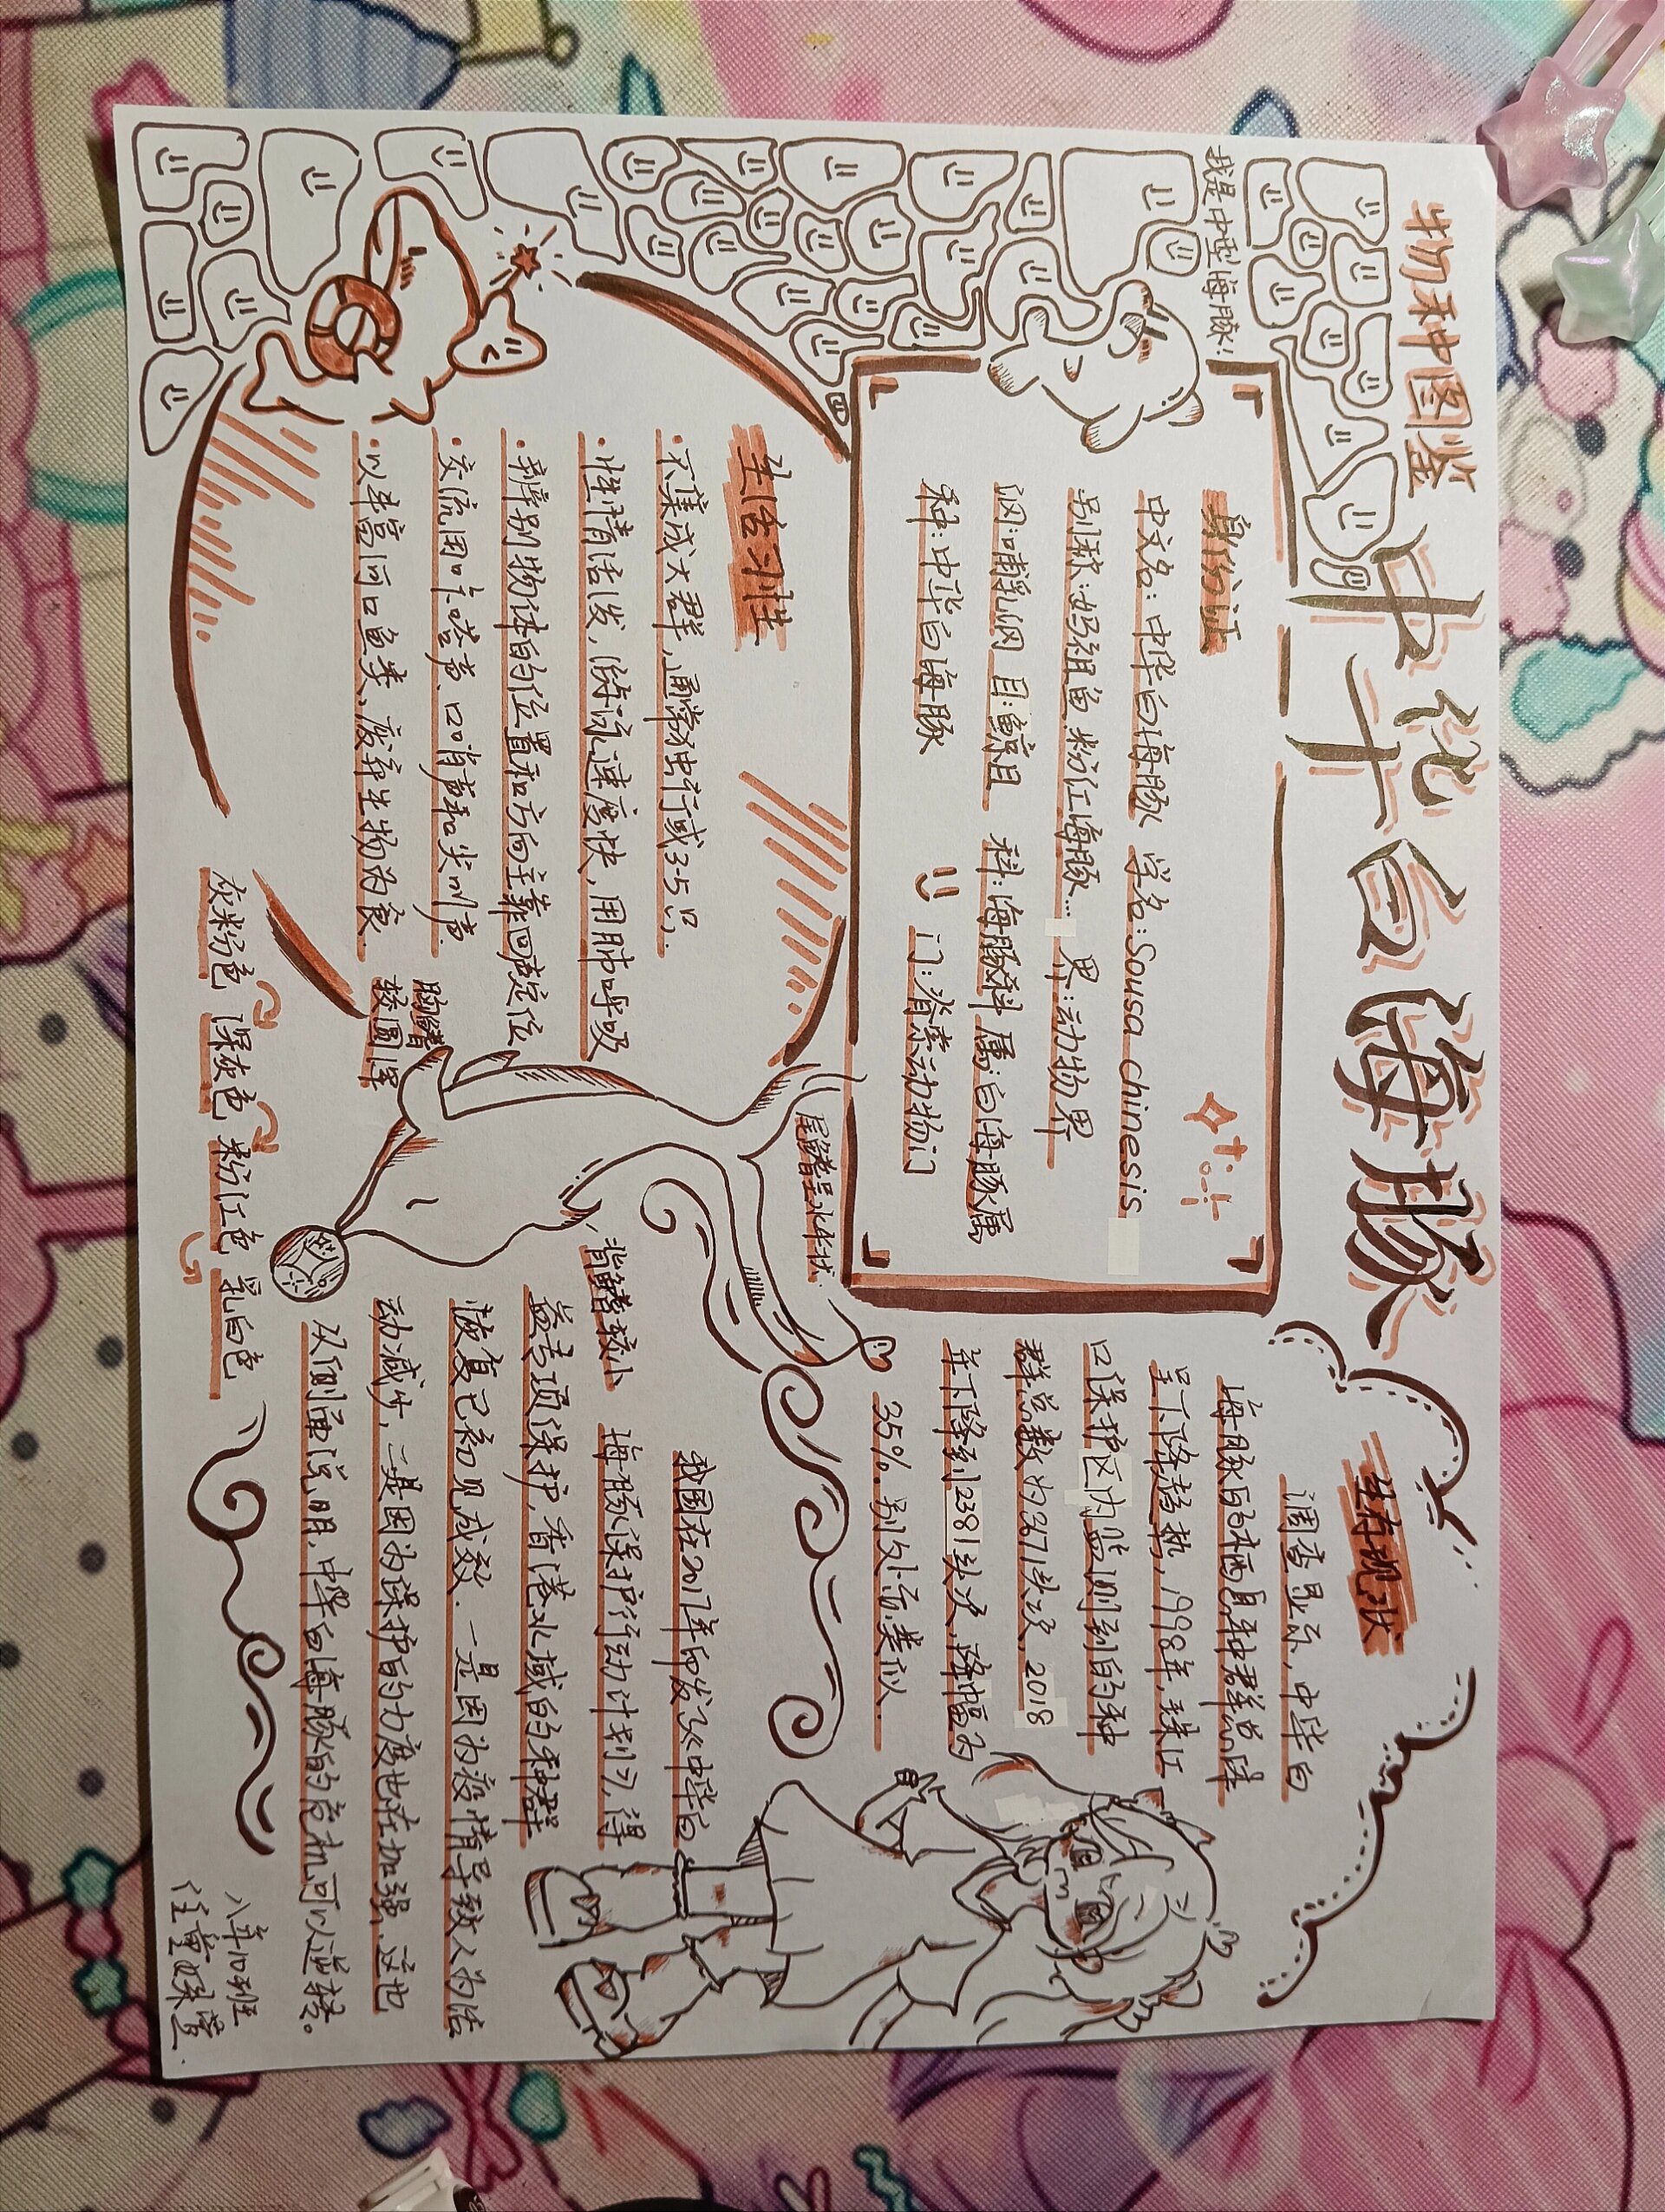 物种图鉴
中华白海豚
我是中型海豚!
身份证
中文名:中华白海豚 学名:Sousa chinesis
别称:妈祖鱼.粉江海豚... 界:动物界
纲:哺乳纲 目:鲸目 科:海豚科 属:白海豚属
种:中华白海豚 门:脊索动物门
生活习性
·不集成大群,通常独行或3-5只.
·性情活泼,游泳速度快,用肺呼吸
·辨别物体的位置和方向主靠回声定位
·交流用咔嗒声、口哨声和尖叫声.
·以丰富河口鱼类、废弃生物为食.
尾鳍呈水平状.
胸鳍
较圆浑
背鳍较小
灰粉色 深灰色 粉红色 乳白色
生存现状
调查显示,中华白
海豚的栖息种群总体
呈下降趋势,1998年,珠江
口保护区内监测到的种
群总数为3671头次,2018
年下降到2381头次,降幅为
35%.别处亦类似.
我国在2017年印发《中华白
海豚保护行动计划》,得
益专项保护,香港水域的种群
恢复已初见成效.一是因为疫情导致人为活
动减少,二是因为保护的力度也在加强,这也
从侧面说明,中华白海豚的危机可以逆转。
八年10班